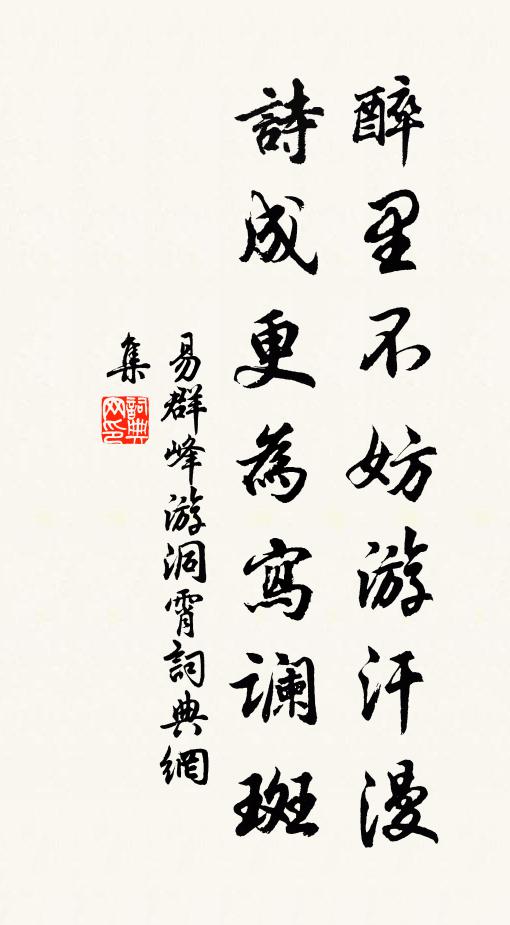 醉里不妨游汗漫
詩成更為寫谰斑
易群峰游洞霄詞典網
集
詞典网印